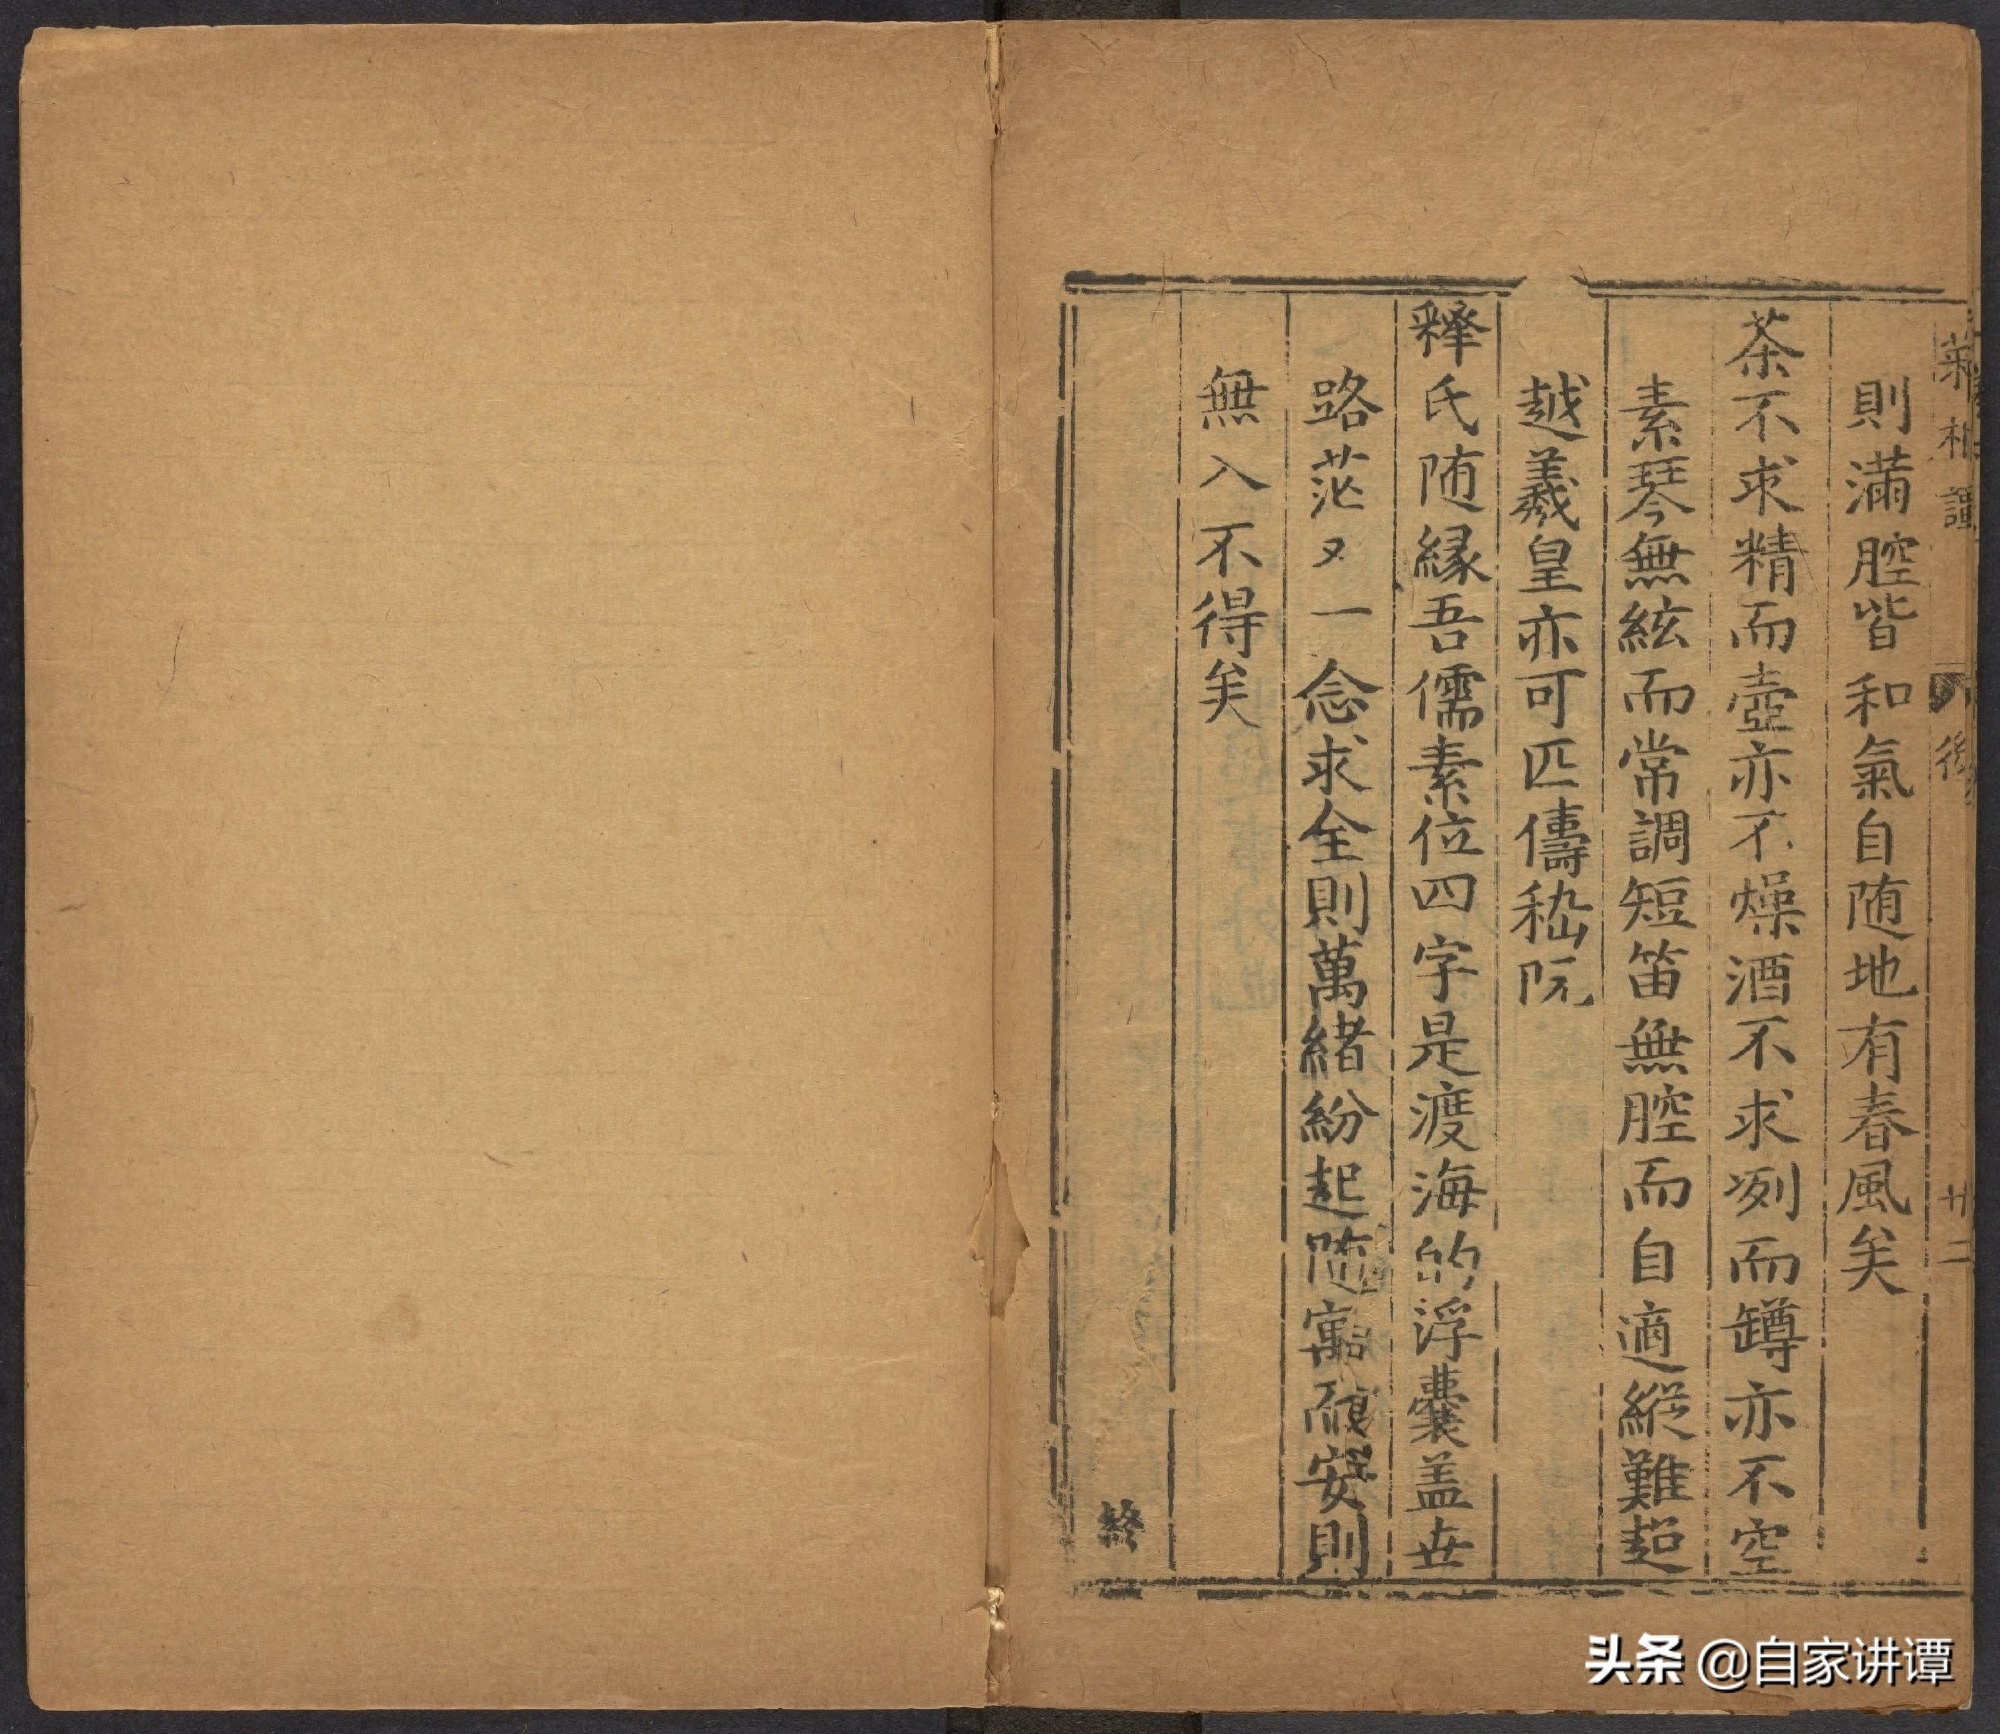 菜根譚 後 廿二
則滿腔皆和氣自随地有春風矣
茶不求精而壺亦不燥酒不求冽而罇亦不空
素琴無絃而常調短笛無腔而自適縱難超
越羲皇亦可匹儔嵇阮
釋氏随緣吾儒素位四字是渡海的浮囊盖世
路茫〻一念求全則萬緒紛起随寓而安則
無入不得矣
終
头条 @自家讲谭